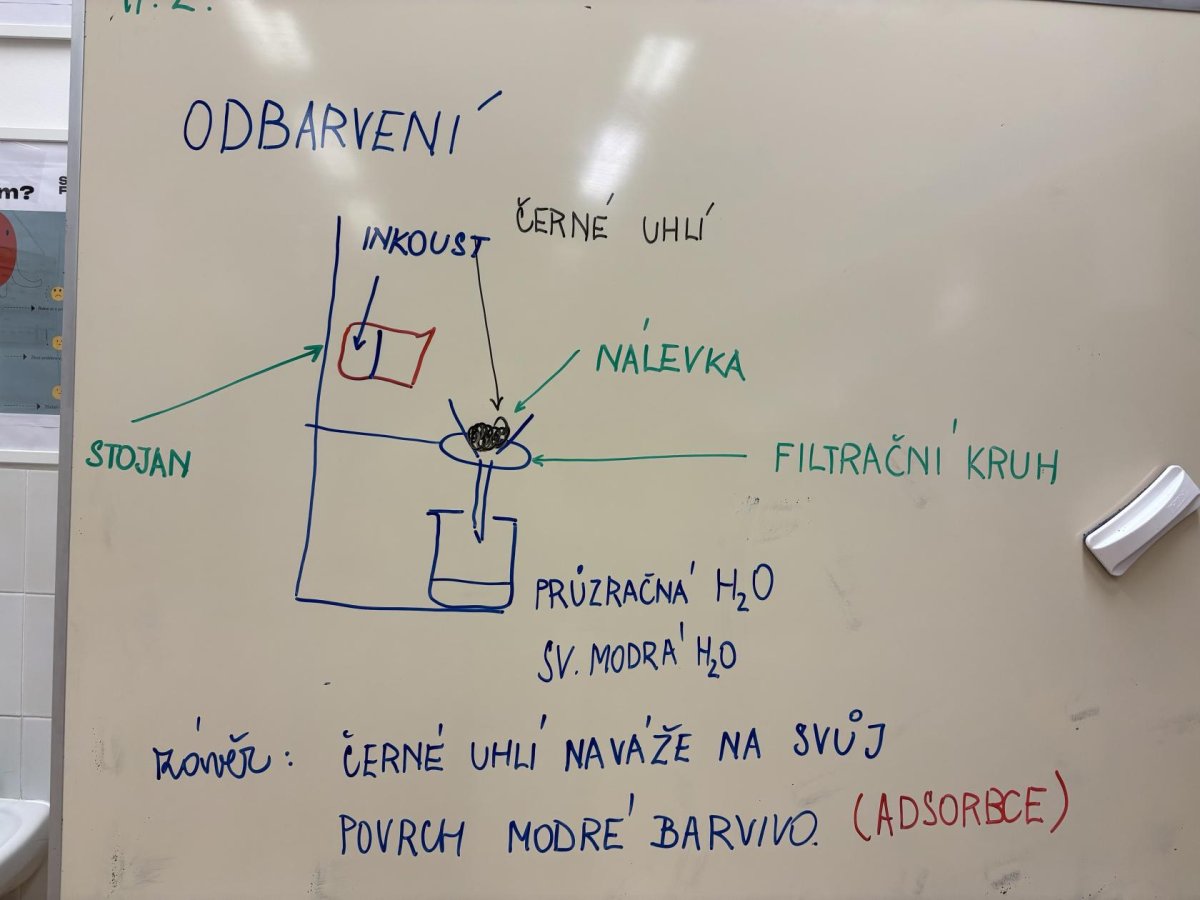 ODBARVENÍ
INKOUST
ČERNÉ UHLÍ
NÁLEVKA
STOJAN
FILTRAČNÍ KRUH
PRŮZRAČNÁ H₂O
SV. MODRÁ H₂O
závěr: ČERNÉ UHLÍ NAVÁŽE NA SVŮJ
POVRCH MODRÉ BARVIVO. (ADSORBCE)
m?